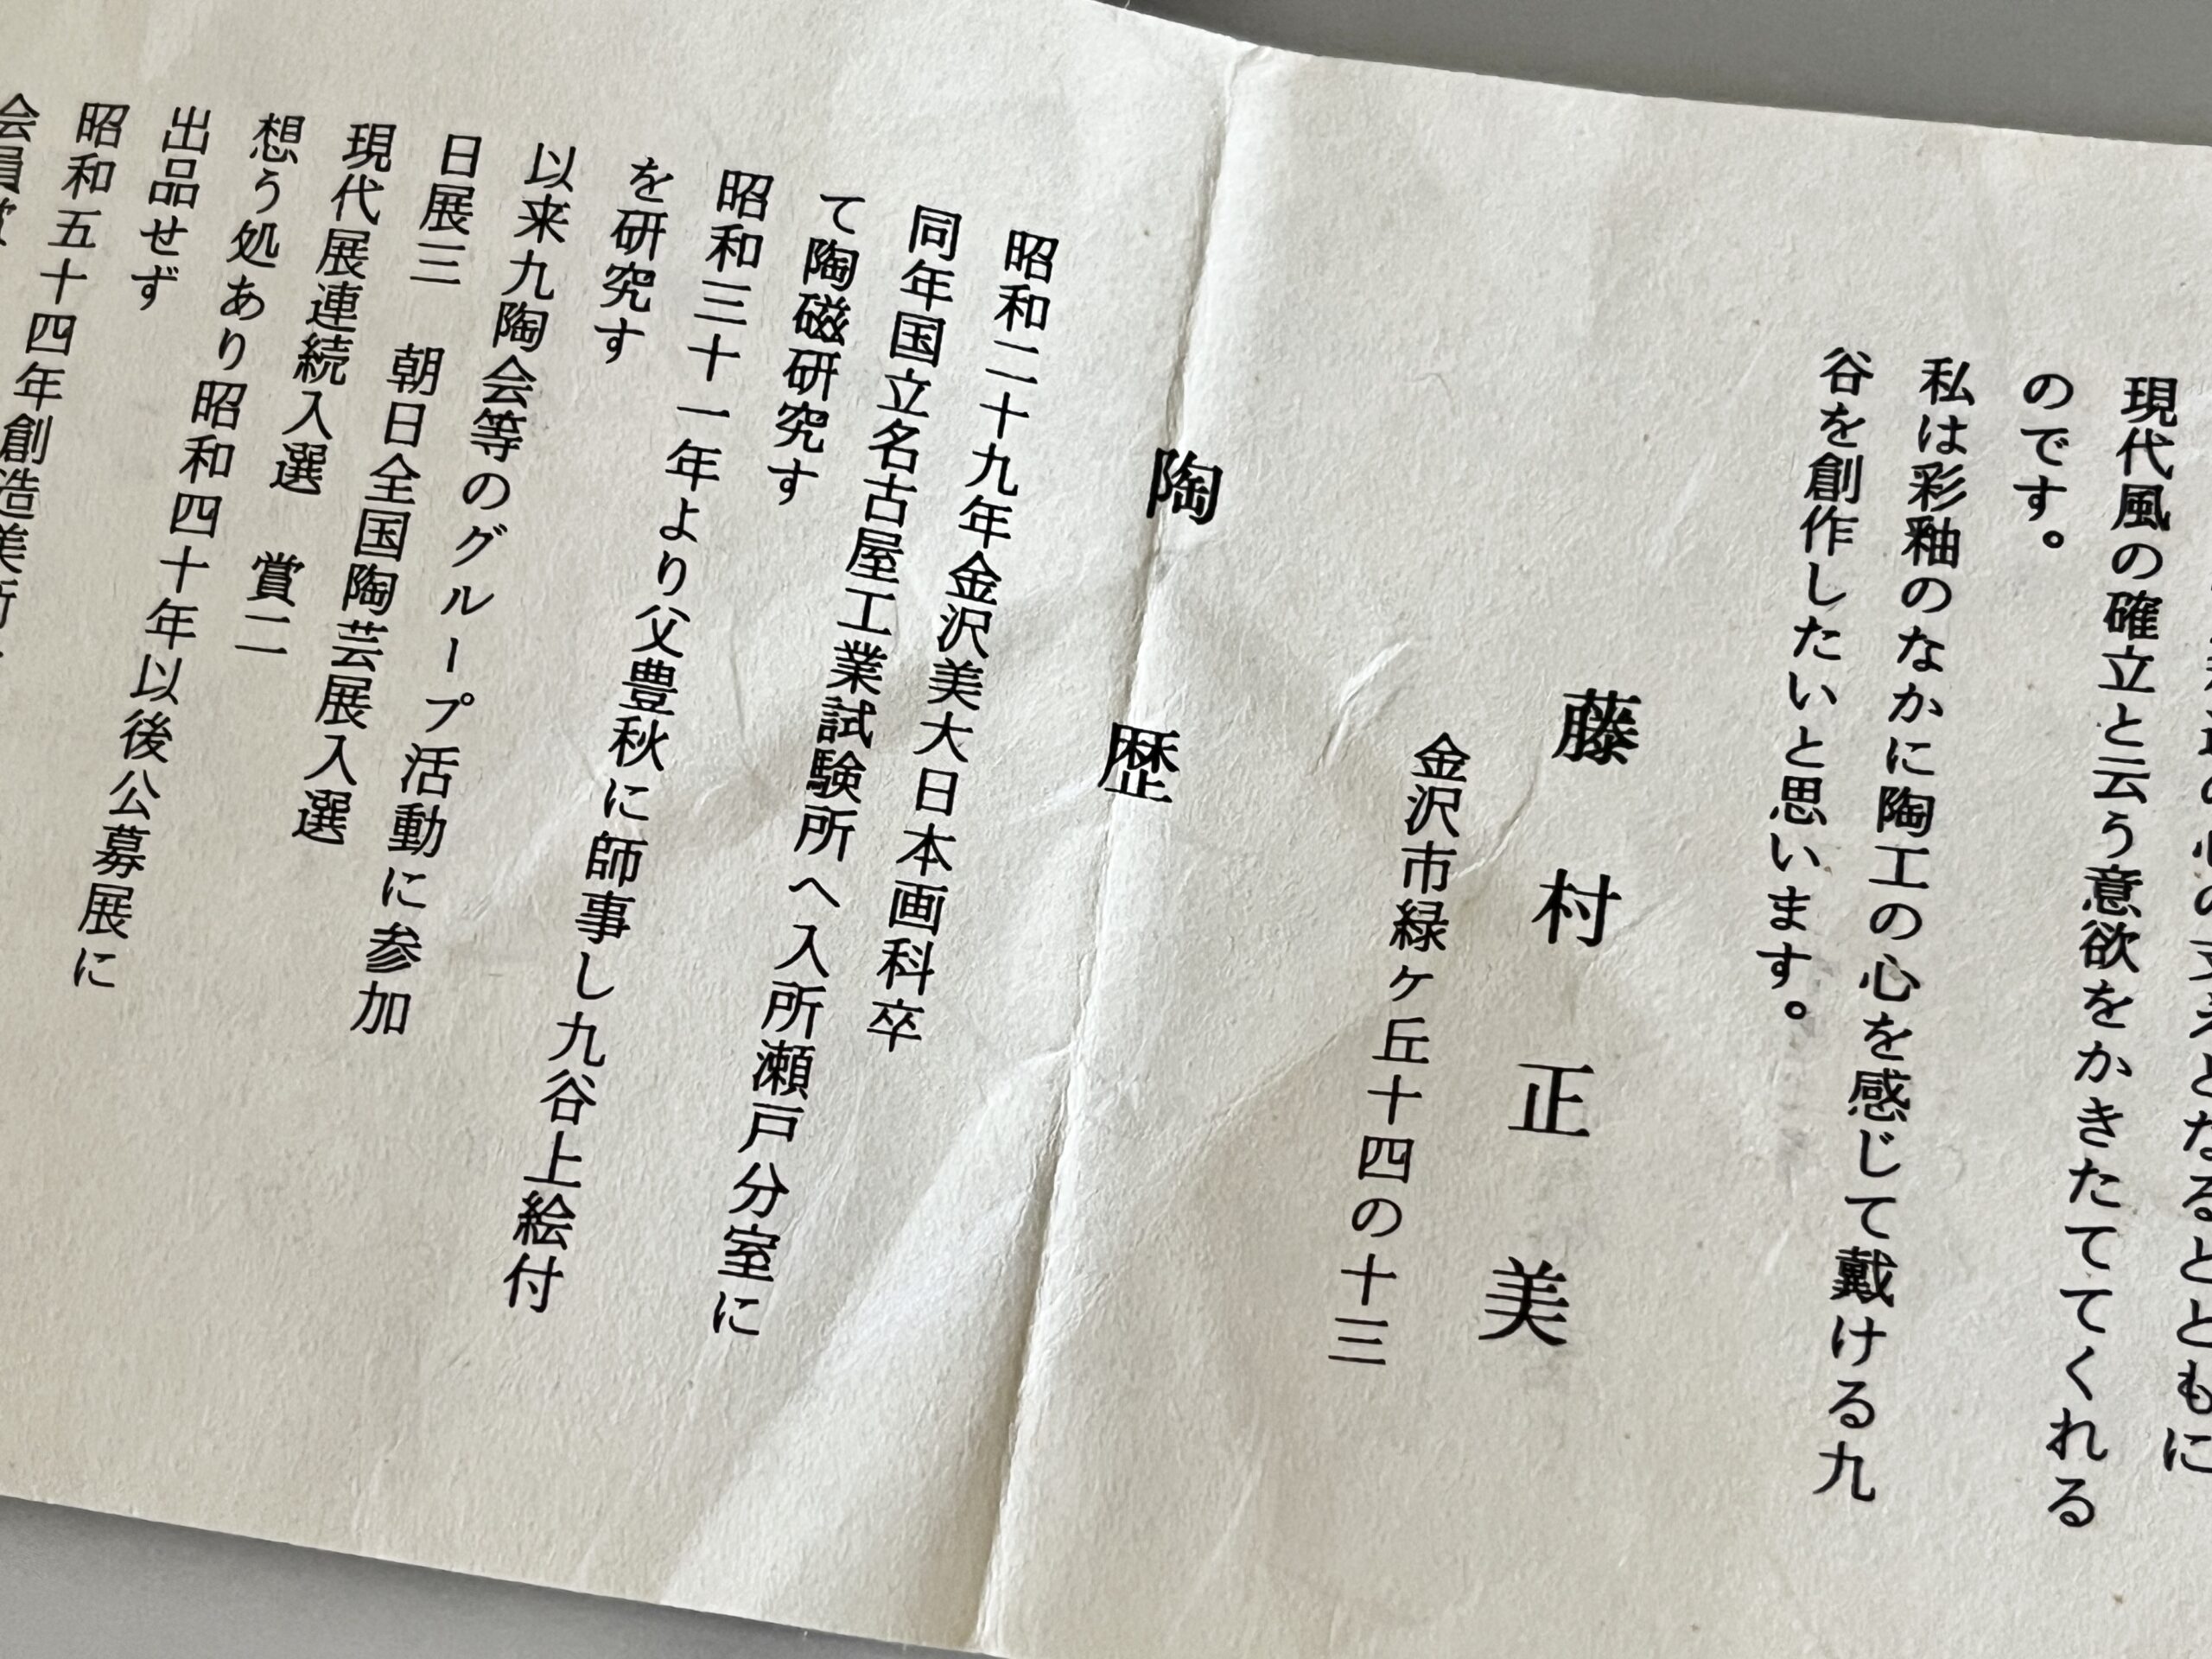 心の支えとなるとともに
現代風の確立と云う意欲をかきたててくれる
のです。
私は彩釉のなかに陶工の心を感じて戴ける九
谷を創作したいと思います。
藤村正美
金沢市緑ヶ丘十四の十三
陶歴
昭和二十九年金沢美大日本画科卒
同年国立名古屋工業試験所へ入所瀬戸分室に
て陶磁研究す
昭和三十一年より父豊秋に師事し九谷上絵付
を研究す
以来九陶会等のグループ活動に参加
日展三　朝日全国陶芸展入選
現代展連続入選　賞二
想う処あり昭和四十年以後公募展に
出品せず
昭和五十四年創造美術
会員